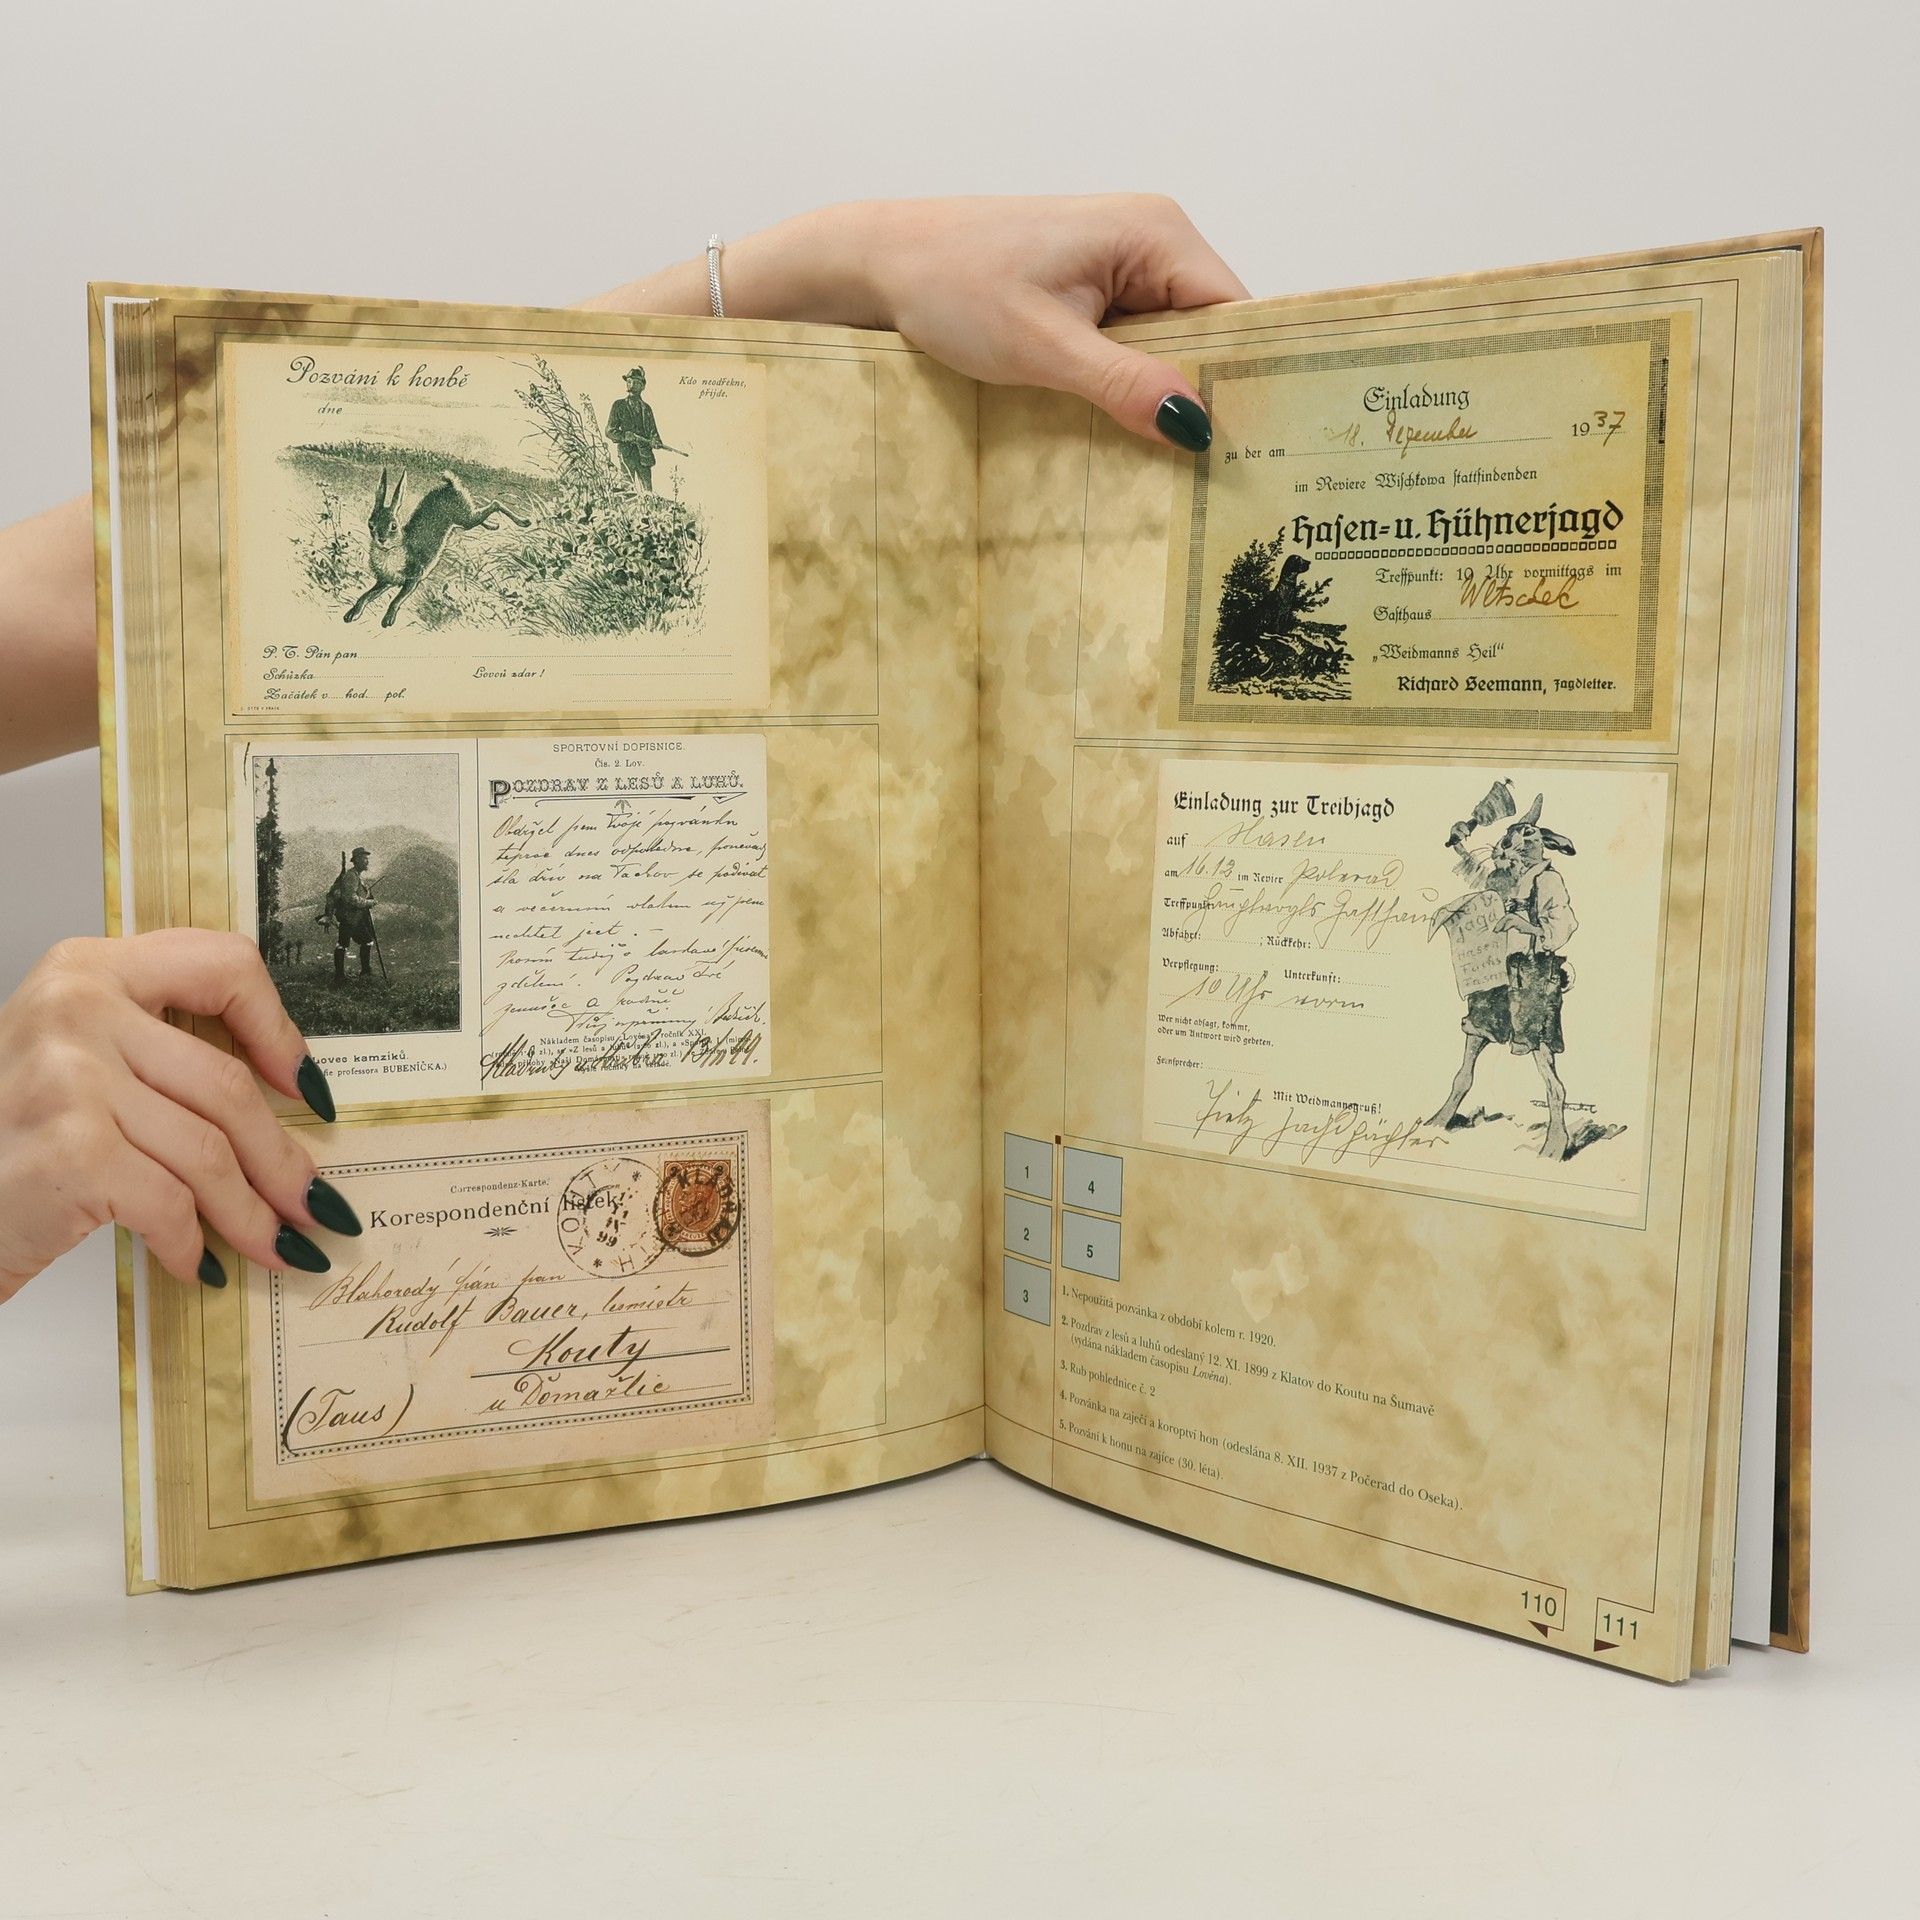 Pozvání k honbě
dne
Kdo neodřekne,
přijde.
P. T. Pán pan
Schůzka
Lovou zdar!
Začátek v hod. pol.
SPORTOVNÍ DOPISNICE.
Čís. 2. Lov.
POZDRAV Z LESŮ A LUHŮ.
Obdržel jsem Tvoji pozvánku
teprve dnes odpoledne,
na Tachov se podívat
a večerním vlakem
jet. –
Prosím
zdělení. Pozdrav
a
Nákladem časopisu „Lověna“, ročník XXI.
13/11 99.
Lovec kamzíků.
professora BUBENÍČKA.)
Correspondenz-Karte.
Korespondenční lístek.
KOUT
99
KLADRAU
Blahorody pán pan
Rudolf Bauer,
Kouty
u Domažlic
(Taus)
Einladung
zu der am 18. Dezember 1937
im Reviere Wischkowa stattfindenden
Hasen- u. Hühnerjagd
Treffpunkt: 10 Uhr vormittags im
Gasthaus Wltschek
„Weidmanns Heil“
Richard Seemann, Jagdleiter.
Einladung zur Treibjagd
auf Hasen
am 16.12 im Revier Polerad
Treffpunkt: Gasthaus
Abfahrt: ; Rückkehr:
Verpflegung: Unterkunft:
10 Uhr vorm
Wer nicht absagt, kommt,
oder um Antwort wird gebeten.
Fernsprecher:
Mit Weidmannsgruß!
Jagd
Hasen
Fuchs
Fasan
1
2
3
4
5
1. Nepoužitá pozvánka z období kolem r. 1920.
2. Pozdrav z lesů a luhů odeslaný 12. XI. 1899 z Klatov do Koutu na Šumavě
(vydána nákladem časopisu Lověna).
3. Rub pohlednice č. 2
4. Pozvánka na zaječí a koroptví hon (odeslána 8. XII. 1937 z Počerad do Oseka).
5. Pozvání k honu na zajíce (30. léta).
110
111